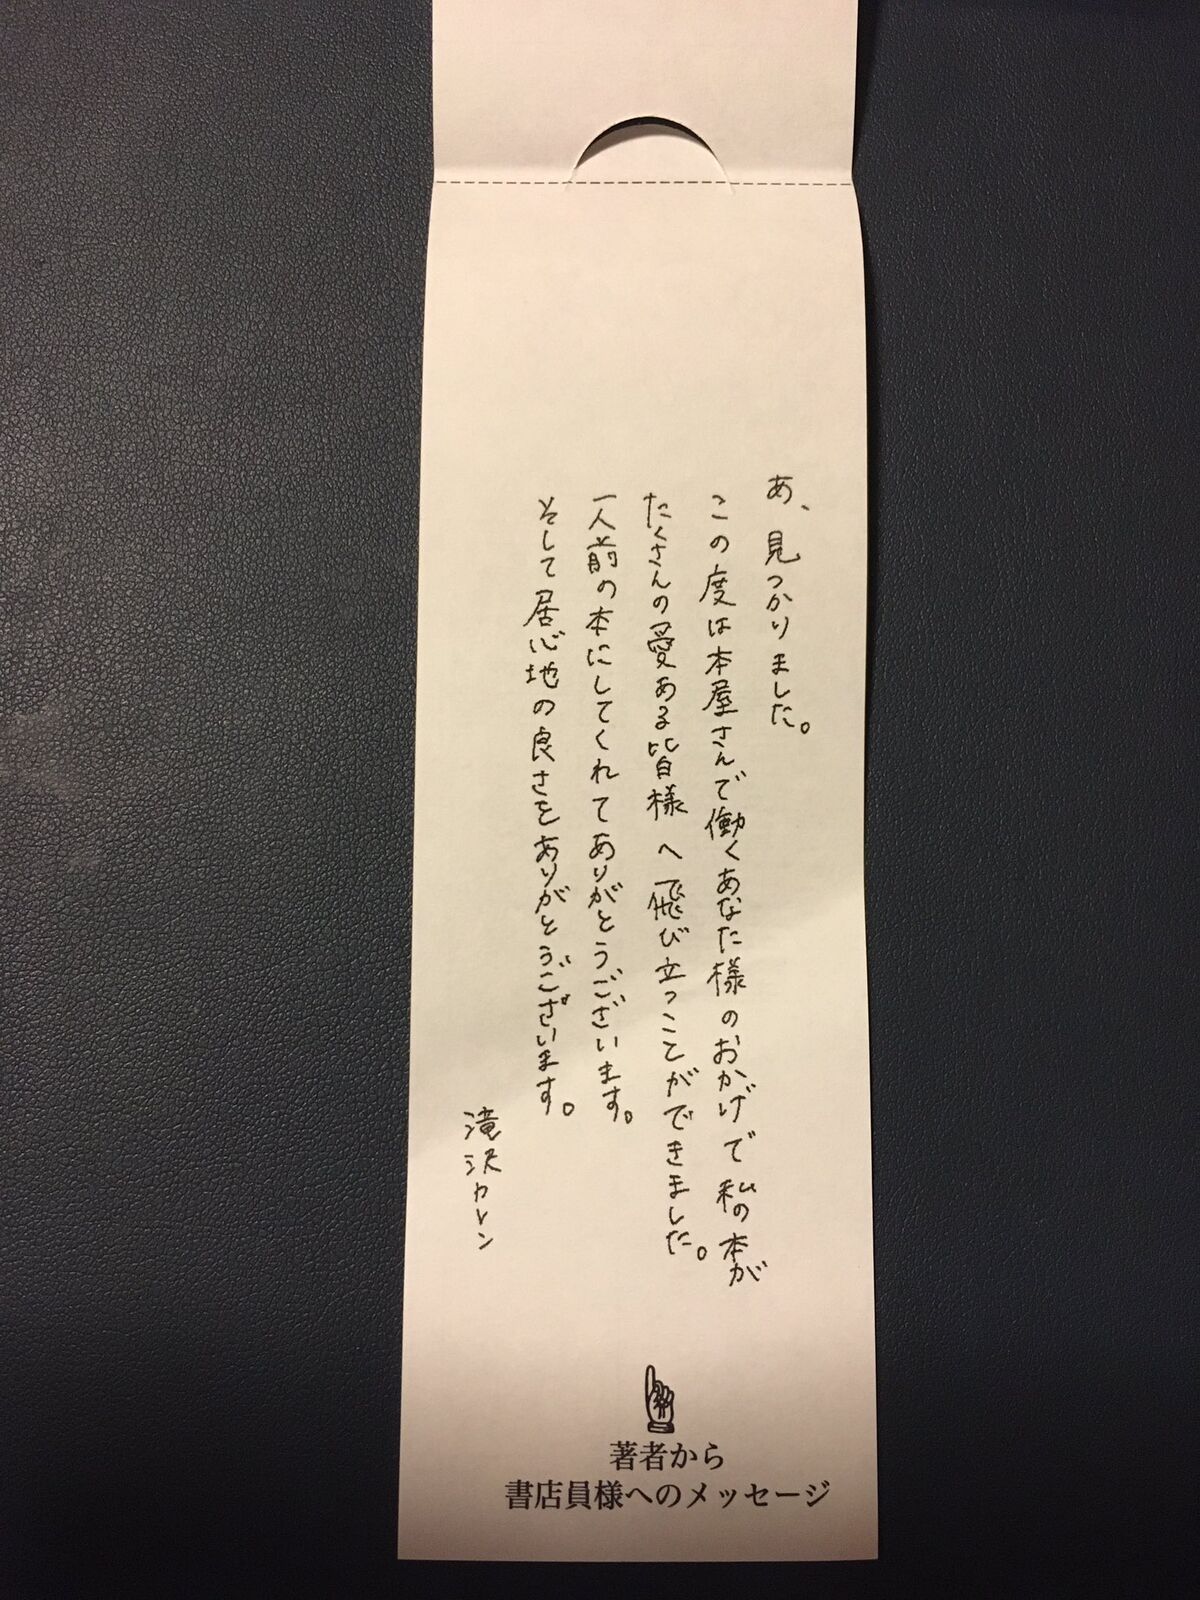 あ、見つかりました。
この度は本屋さんで働くあなた様のおかげで私の本が
たくさんの愛ある皆様へ飛び立つことができました。
一人前の本にしてくれてありがとうございます。
そして居心地の良さをありがとうございます。
滝沢カレン
著者から
書店員様へのメッセージ